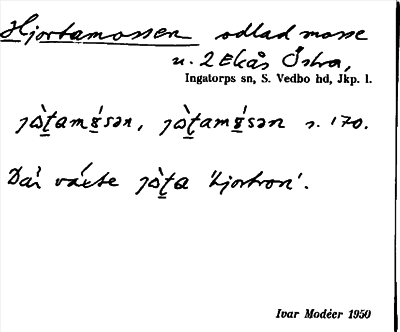 Hjortamossen odlad mosse
u. 2 Ekås Östra,
Ingatorps sn, S. Vedbo hd, Jkp. l.
jò̱tamǿsən, jò̱tamǿsən s. 170.
Där växte jò̱ta 'hjortron'.
Ivar Modéer 1950